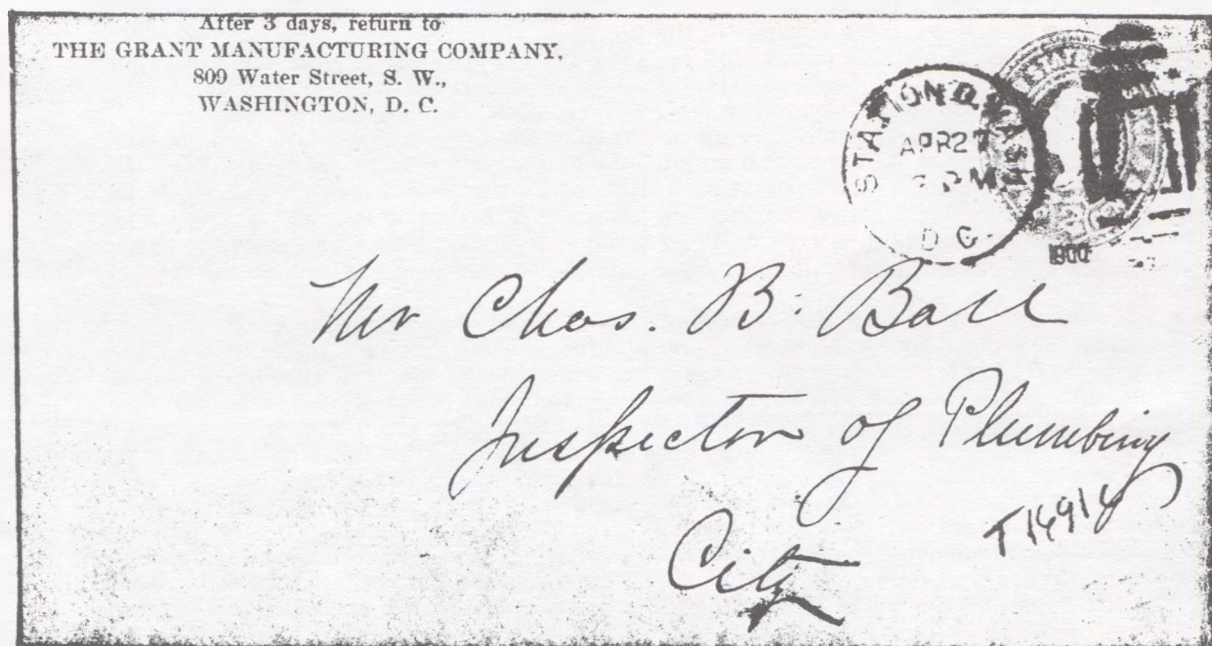 After 3 days, return to
THE GRANT MANUFACTURING COMPANY,
809 Water Street, S. W.,
WASHINGTON, D. C.
STATION D. WASH
APR 27
PM
D C.
STATES
Mr Chas. B. Ball
Inspector of Plumbing
City